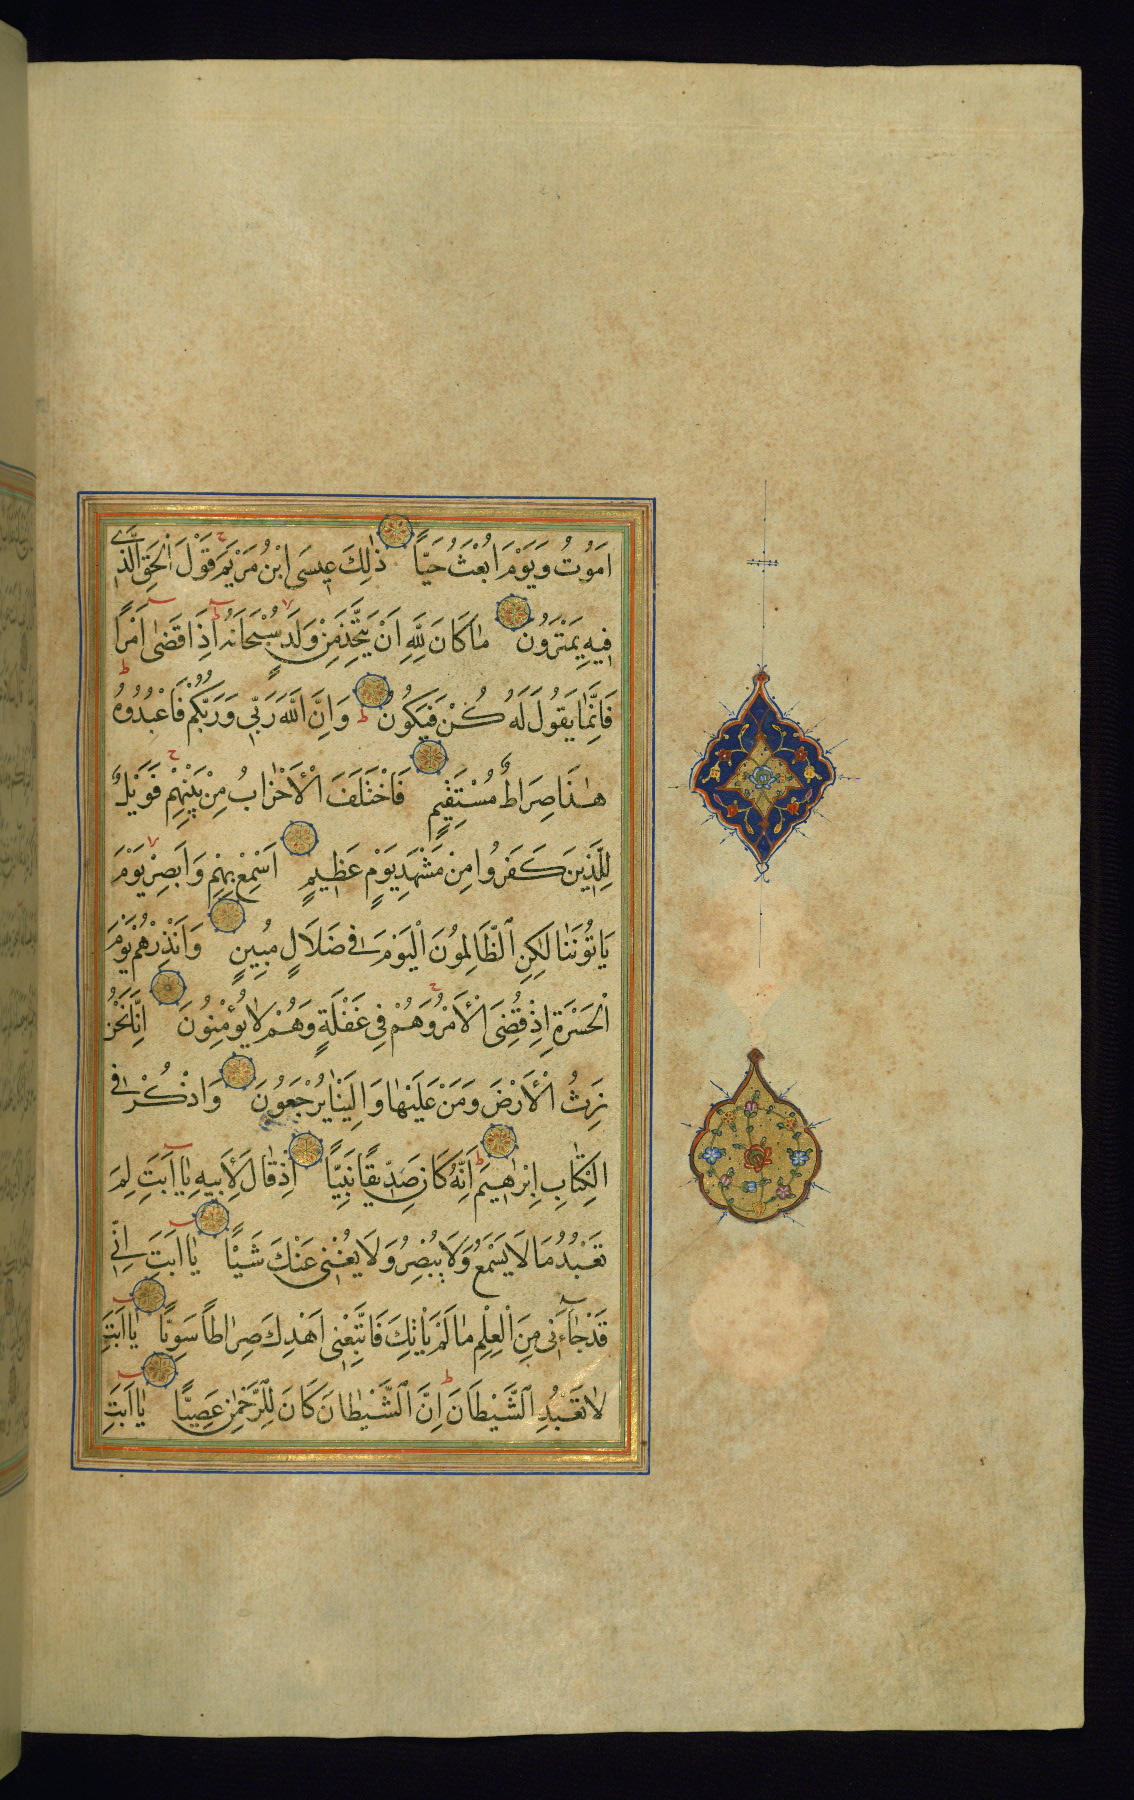 اَمُوتُ وَيَوْمَ اُبْعَثُ حَيًّا ذٰلِكَ عِيسَى ابْنُ مَرْيَمَ قَوْلَ الْحَقِّ الَّذِي
فِيهِ يَمْتَرُونَ مَا كَانَ لِلّٰهِ اَنْ يَتَّخِذَ مِنْ وَلَدٍ سُبْحَانَهُ اِذَا قَضٰى اَمْرًا
فَاِنَّمَا يَقُولُ لَهُ كُنْ فَيَكُونُ وَاِنَّ اللّٰهَ رَبِّي وَرَبُّكُمْ فَاعْبُدُوهُ
هٰذَا صِرَاطٌ مُسْتَقِيمٌ فَاخْتَلَفَ الْاَحْزَابُ مِنْ بَيْنِهِمْ فَوَيْلٌ
لِلَّذِينَ كَفَرُوا مِنْ مَشْهَدِ يَوْمٍ عَظِيمٍ اَسْمِعْ بِهِمْ وَاَبْصِرْ يَوْمَ
يَاْتُونَنَا لٰكِنِ الظَّالِمُونَ الْيَوْمَ فِي ضَلَالٍ مُبِينٍ وَاَنْذِرْهُمْ يَوْمَ
الْحَسْرَةِ اِذْ قُضِيَ الْاَمْرُ وَهُمْ فِي غَفْلَةٍ وَهُمْ لَا يُؤْمِنُونَ اِنَّا نَحْنُ
نَرِثُ الْاَرْضَ وَمَنْ عَلَيْهَا وَاِلَيْنَا يُرْجَعُونَ وَاذْكُرْ فِي
الْكِتَابِ اِبْرٰهِيمَ اِنَّهُ كَانَ صِدِّيقًا نَبِيًّا اِذْ قَالَ لِاَبِيهِ يَا اَبَتِ لِمَ
تَعْبُدُ مَا لَا يَسْمَعُ وَلَا يُبْصِرُ وَلَا يُغْنِي عَنْكَ شَيْئًا يَا اَبَتِ اِنِّي
قَدْ جَاءَنِي مِنَ الْعِلْمِ مَا لَمْ يَاْتِكَ فَاتَّبِعْنِي اَهْدِكَ صِرَاطًا سَوِيًّا يَا اَبَتِ
لَا تَعْبُدِ الشَّيْطَانَ اِنَّ الشَّيْطَانَ كَانَ لِلرَّحْمٰنِ عَصِيًّا يَا اَبَتِ